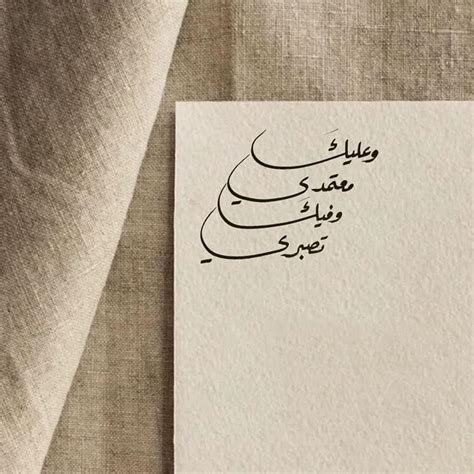 وعليكَ
معتمدي
وفيك
تصبري